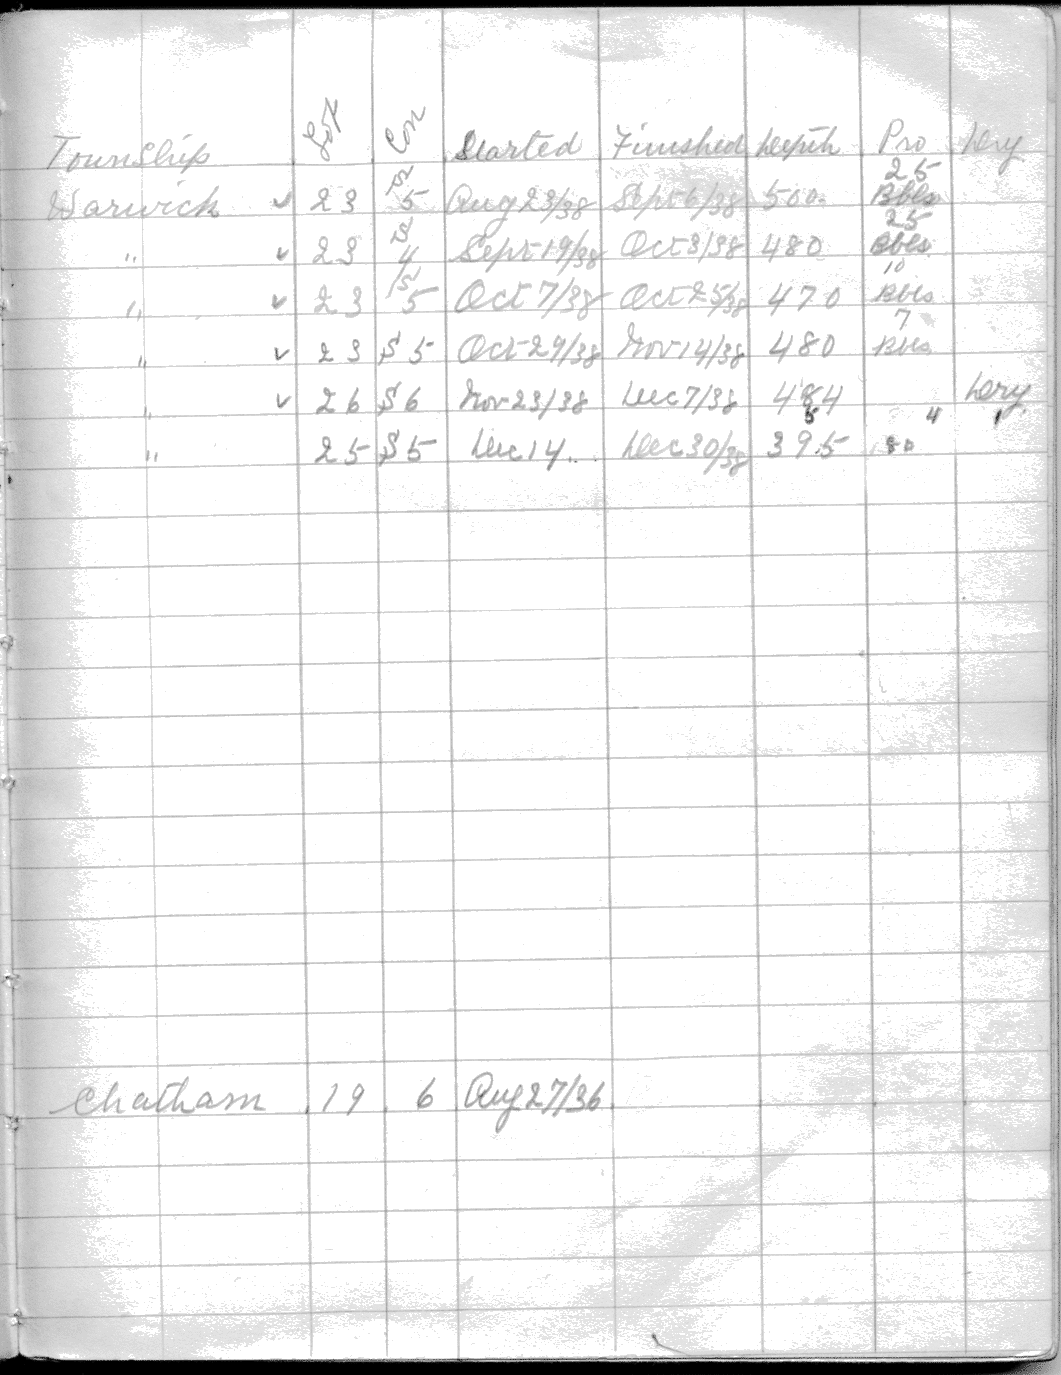 Township Lot Con Started Finished Depth Pro Dry
25
Warwick ✓ 23 5 Aug 23/38 Sept 6/38 500 Bbls
25
" ✓ 23 4 Sept 19/38 Oct 3/38 480 Bbls
10
" ✓ 23 5 Oct 7/38 Oct 25/38 470 Bbls
7
" ✓ 23 S 5 Oct 29/38 Nov 14/38 480 Bbls
" ✓ 26 S 6 Nov 23/38 Dec 7/38 484 Dry
5 4 1
" 25 S 5 Dec 14 .. Dec 30/38 395 80
Chatham 19 6 Aug 27/36